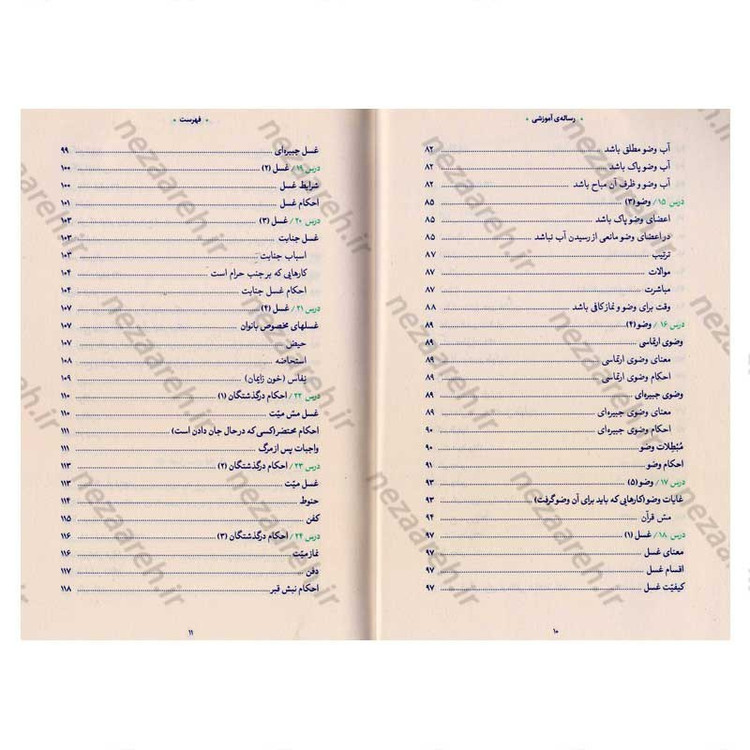 • رساله‌ی آموزشی •
آب وضو مطلق باشد ۸۲
آب وضو پاک باشد ۸۲
آب وضو و ظرف آن مباح باشد ۸۲
درس ۱۵/ وضو (۳) ۸۵
اعضای وضو پاک باشد ۸۵
در اعضای وضو مانعی از رسیدن آب نباشد ۸۵
ترتیب ۸۷
موالات ۸۷
مباشرت ۸۷
وقت برای وضو و نماز کافی باشد ۸۸
درس ۱۶/ وضو (۴) ۸۹
وضوی ارتماسی ۸۹
معنای وضوی ارتماسی ۸۹
احکام وضوی ارتماسی ۸۹
وضوی جبیره‌ای ۸۹
معنای وضوی جبیره‌ای ۸۹
احکام وضوی جبیره‌ای ۹۰
مُبْطِلات وضو ۹۰
احکام وضو ۹۱
درس ۱۷/ وضو (۵) ۹۳
غایات وضو (کارهایی که باید برای آن وضو گرفت) ۹۳
مسّ قرآن ۹۴
درس ۱۸/ غسل (۱) ۹۷
معنای غسل ۹۷
اقسام غسل ۹۷
کیفیّت غسل ۹۷
۱۰
• فهرست •
غسل جبیره‌ای ۹۹
درس ۱۹/ غسل (۲) ۱۰۰
شرایط غسل ۱۰۰
احکام غسل ۱۰۱
درس ۲۰/ غسل (۳) ۱۰۳
غسل جنابت ۱۰۳
اسباب جنابت ۱۰۳
کارهایی که بر جنب حرام است ۱۰۴
احکام غسل جنابت ۱۰۴
درس ۲۱/ غسل (۴) ۱۰۷
غسلهای مخصوص بانوان ۱۰۷
حیض ۱۰۷
استحاضه ۱۰۸
نِفاس (خون زایمان) ۱۰۹
درس ۲۲/ احکام درگذشتگان (۱) ۱۱۰
غسل مسّ میّت ۱۱۰
احکام محتضر (کسی که در حال جان دادن است) ۱۱۱
واجبات پس از مرگ ۱۱۱
درس ۲۳/ احکام درگذشتگان (۲) ۱۱۳
غسل میّت ۱۱۳
حنوط ۱۱۴
کفن ۱۱۵
درس ۲۴/ احکام درگذشتگان (۳) ۱۱۶
نماز میّت ۱۱۶
دفن ۱۱۷
احکام نبش قبر ۱۱۸
۱۱
nezaareh.ir